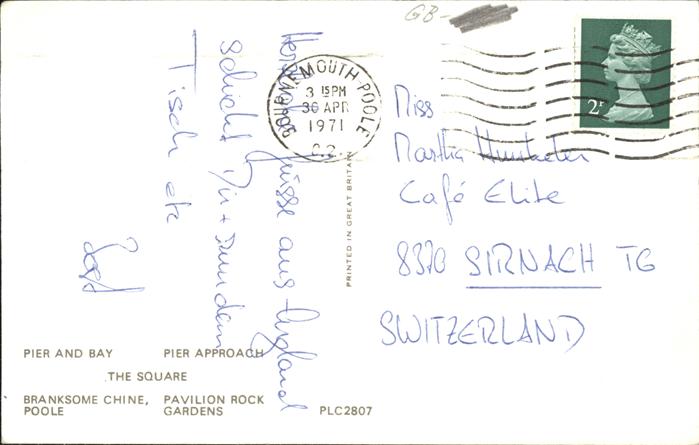 GB
Herzliche Grüsse aus England
schickt Dir +
Tisch etc
BOURNEMOUTH-POOLE
3 15PM
30 APR
1971
2P
PRINTED IN GREAT BRITAIN
Miss
Martha
Café Elite
8370 SIRNACH TG
SWITZERLAND
PIER AND BAY PIER APPROACH
THE SQUARE
BRANKSOME CHINE, PAVILION ROCK
POOLE GARDENS PLC2807